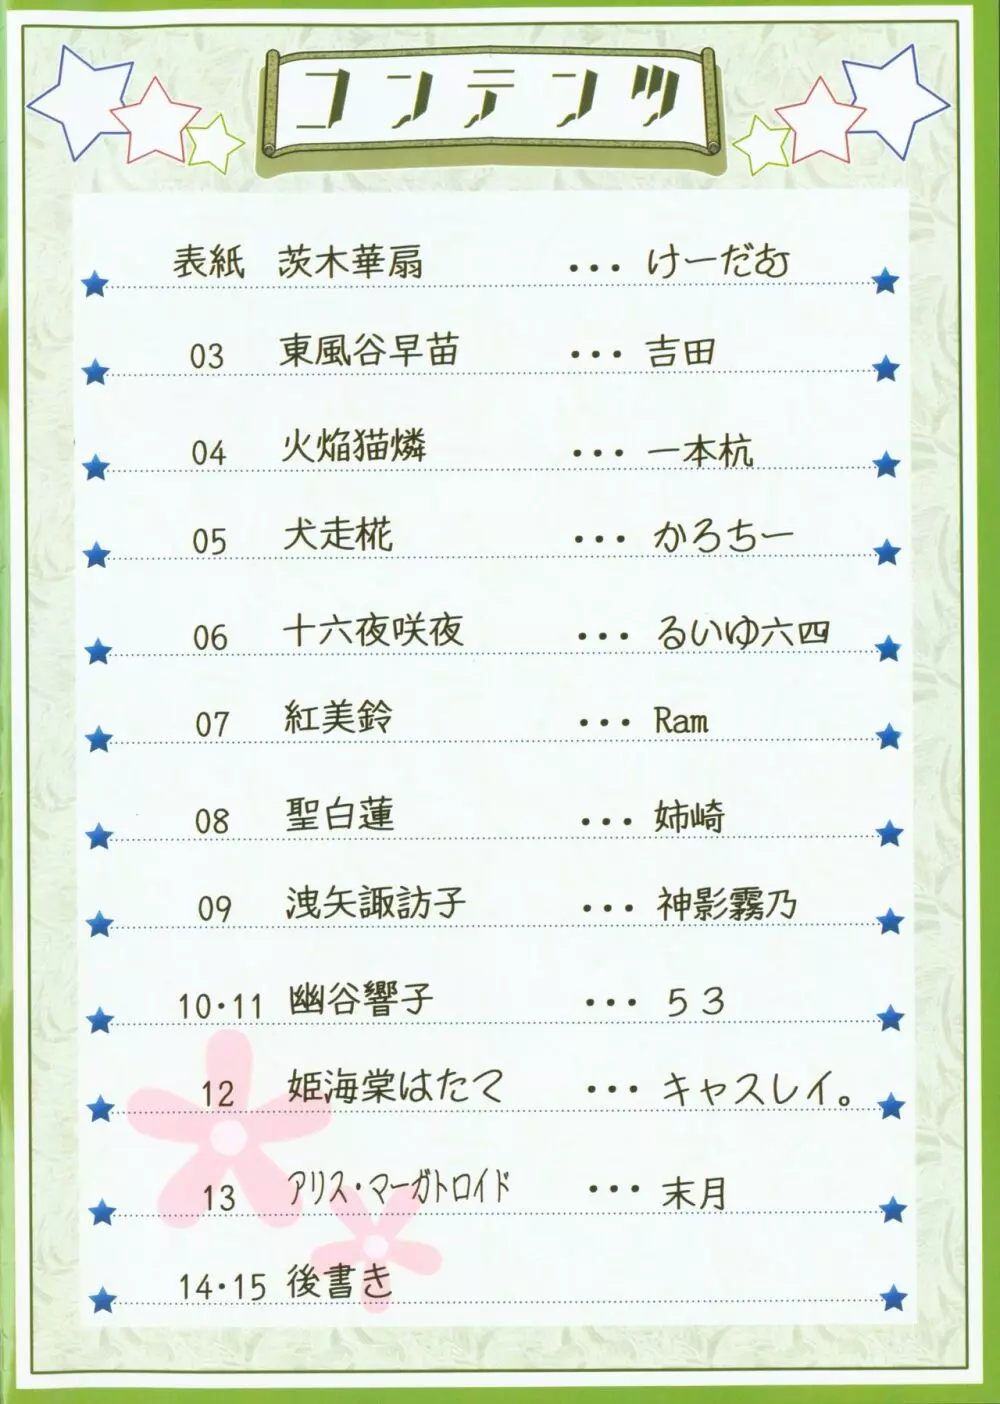 コンテンツ
表紙 茨木華扇 ・・・ けーだむ
03 東風谷早苗 ・・・ 吉田
04 火焔猫燐 ・・・ 一本杭
05 犬走椛 ・・・ かろちー
06 十六夜咲夜 ・・・ るいゆ六四
07 紅美鈴 ・・・ Ram
08 聖白蓮 ・・・ 姉崎
09 洩矢諏訪子 ・・・ 神影霧乃
10・11 幽谷響子 ・・・ ５３
12 姫海棠はたて ・・・ キャスレイ。
13 アリス・マーガトロイド ・・・ 末月
14・15 後書き